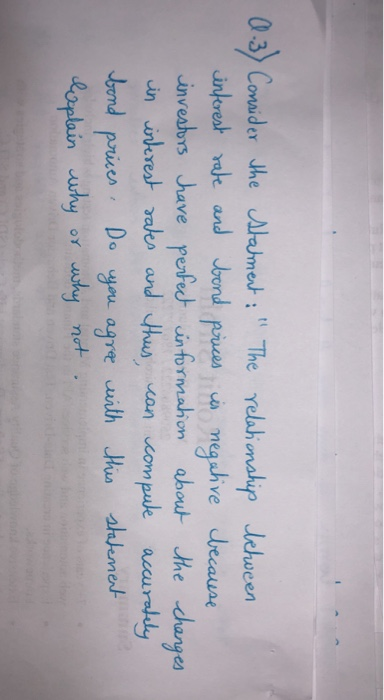 Q.3) Consider the Statment : " The relationship between
interest rate and bond prices is negative because
investors have perfect information about the changes
in interest rates and thus, can compute accurately
bond prices. Do you agree with this statement
Explain why or why not.